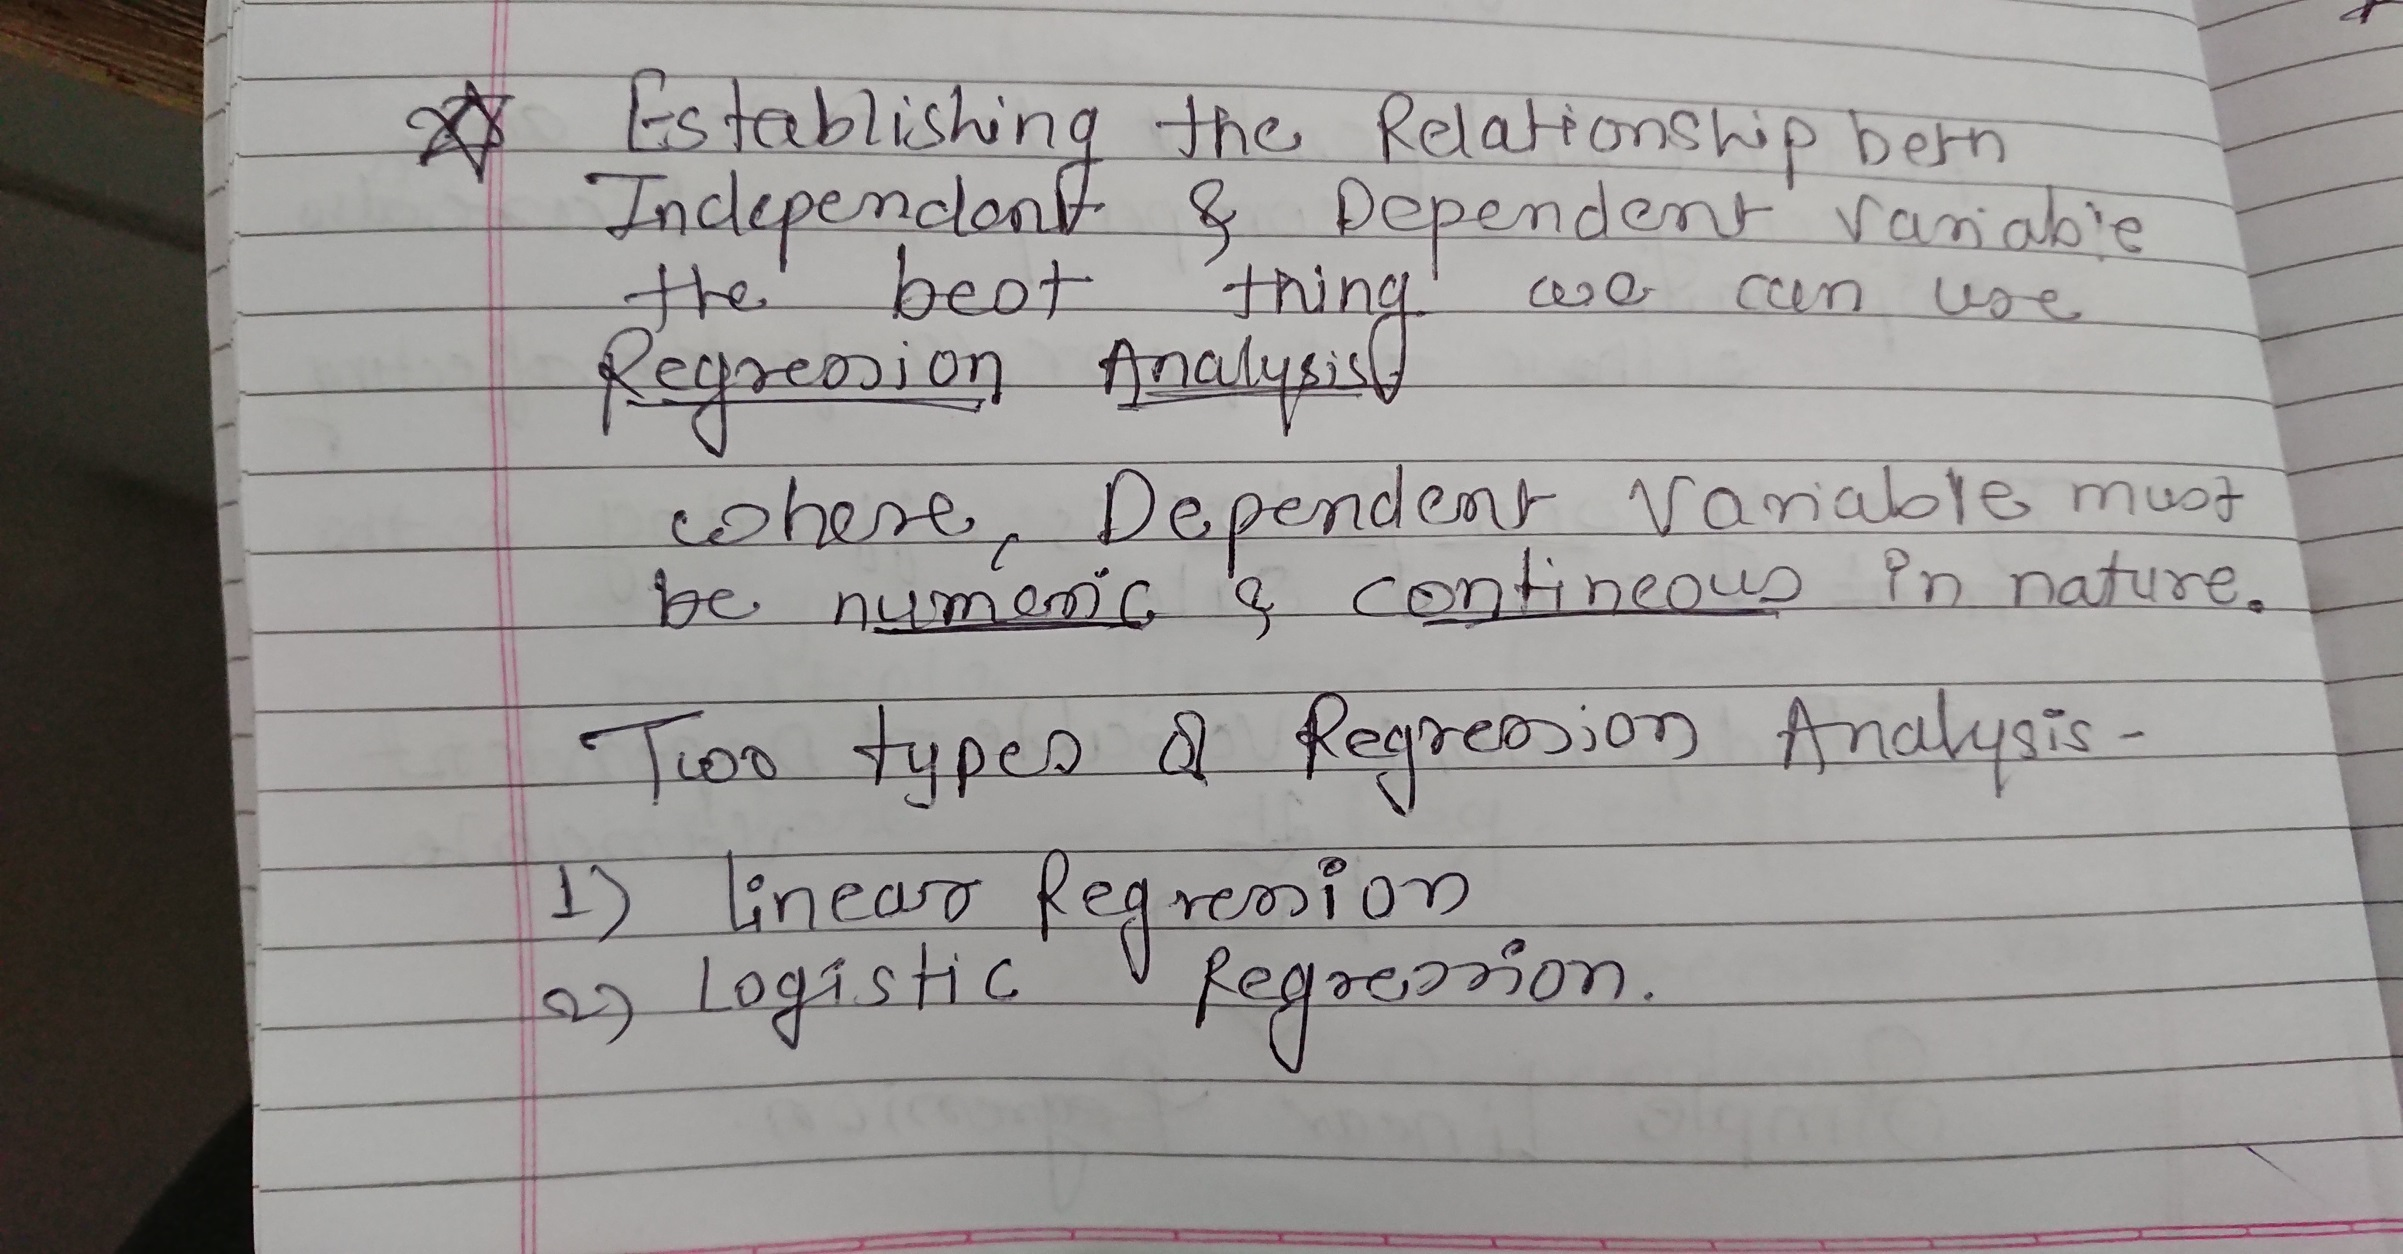 Establishing the Relationship betn
Independent & Dependent Variable
the best thing we can use
Regression Analysis
where, Dependent Variable must
be numeric & contineous in nature.
Two types of Regression Analysis-
1) Linear Regression
2) Logistic Regression.